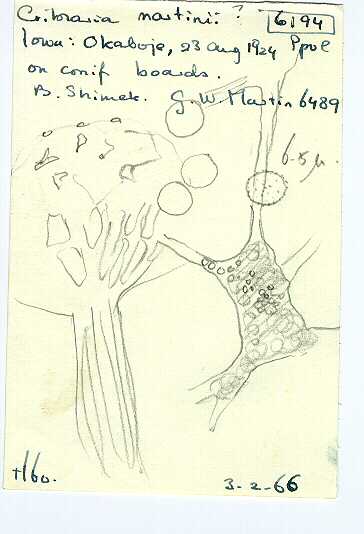 Cribraria martinii ? 6194
Iowa: Okoboje, 23 Aug 1924
on conif boards.
B. Shimek. G. W. Martin 6489
6.5 µ.
×160.
3-2-66